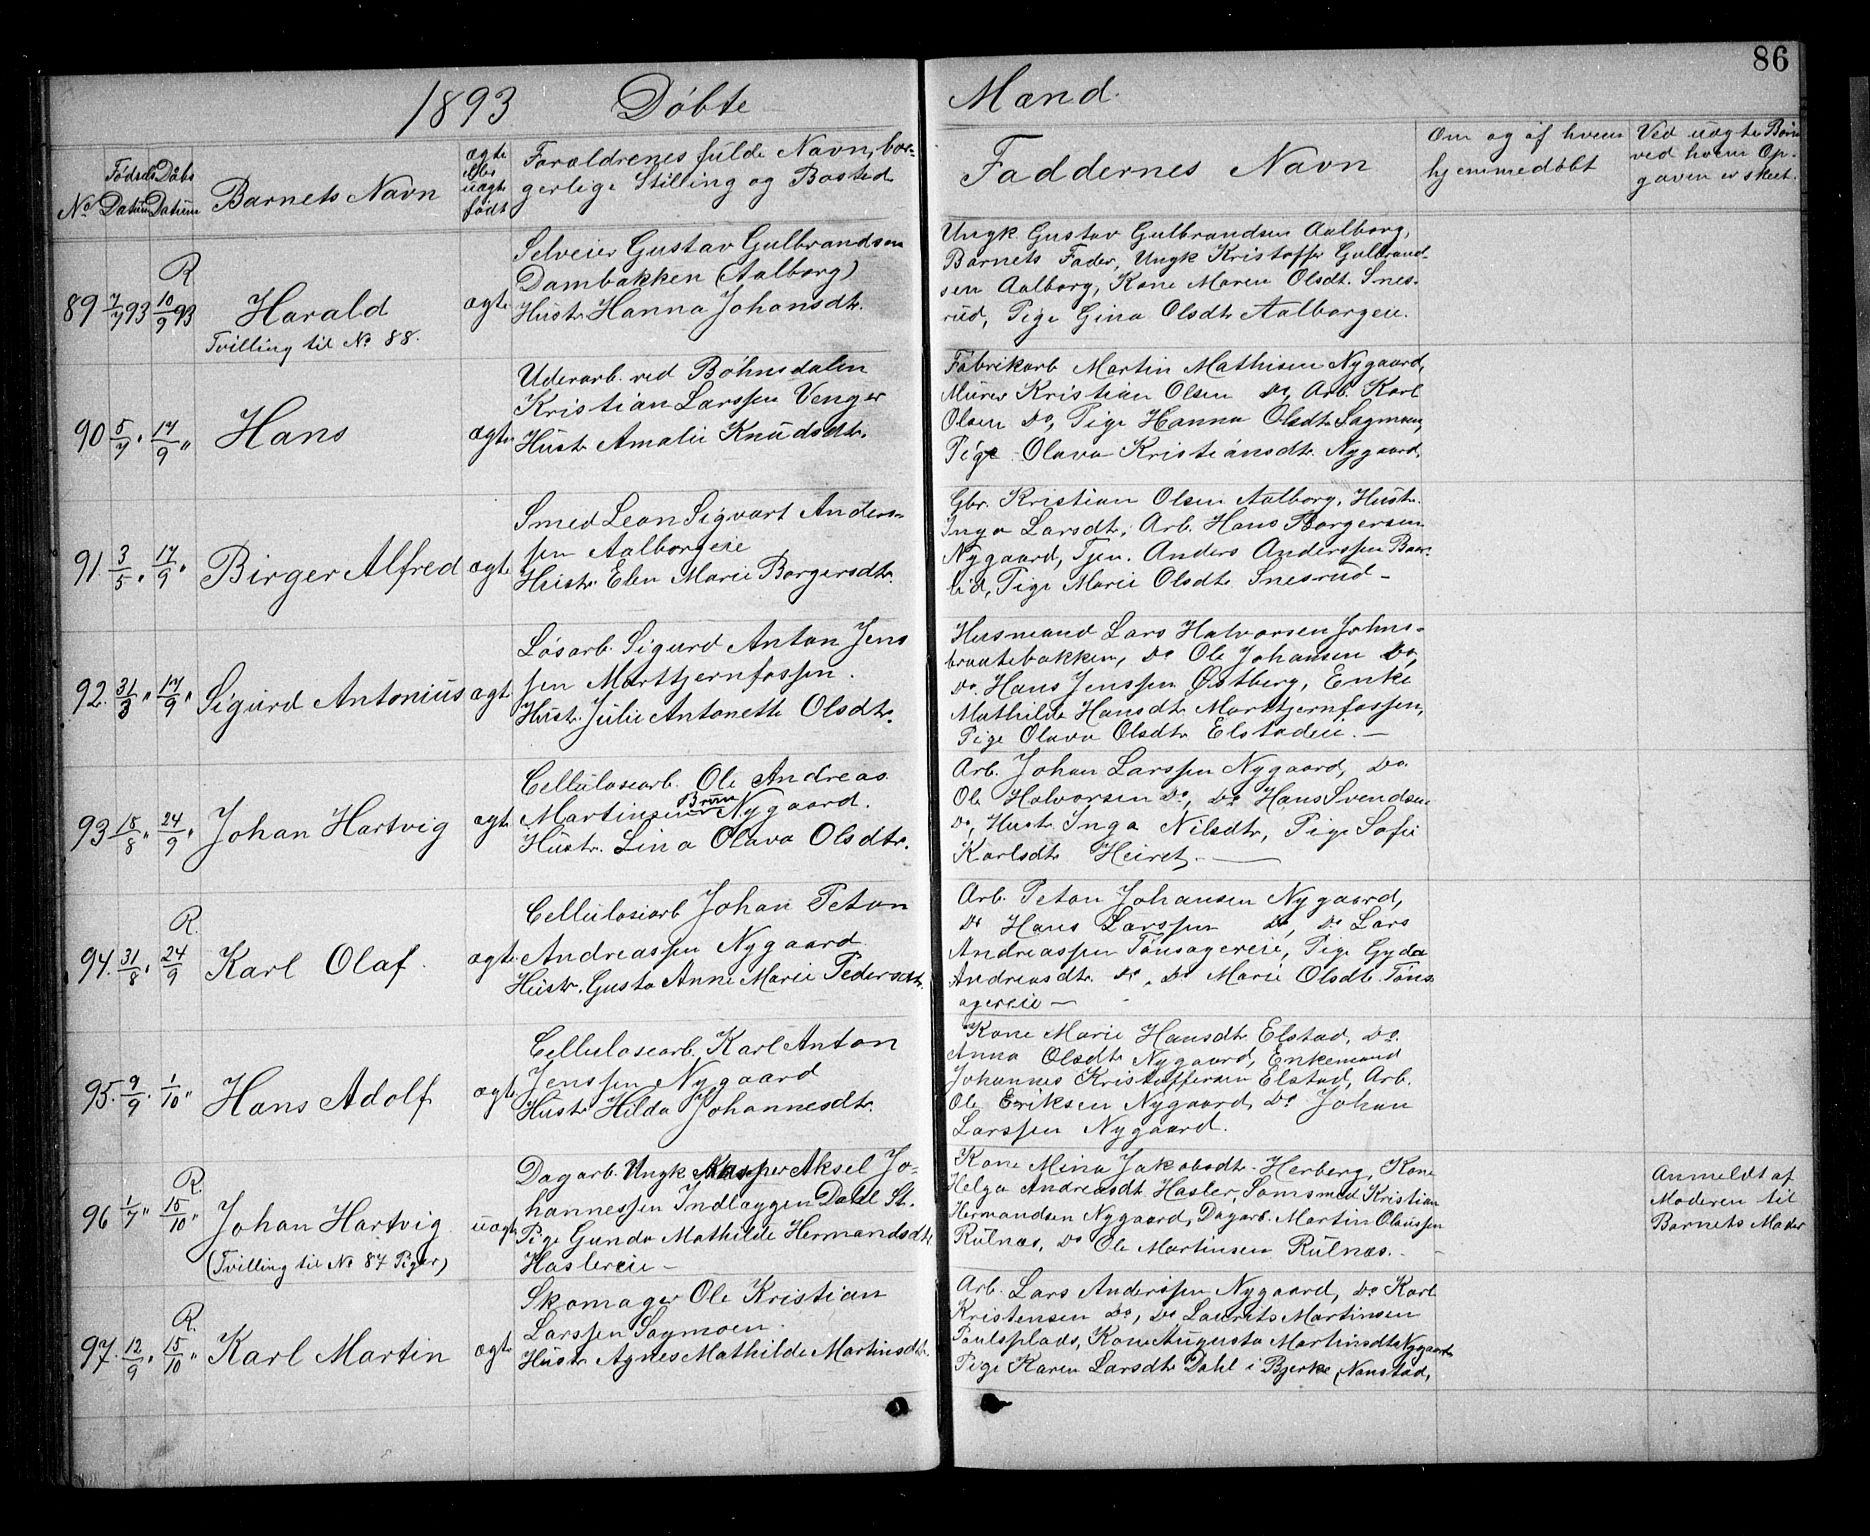 86
1893 Døbte
Mænd.
No
Fødsels Datum
Daabs Datum
Barnets Navn
ægte eller uægte født
Forældrenes fulde Navn, bor-
gerlige Stilling og Bosted
Faddernes Navn
Om og af hvem
hjemmedøbt
Ved uægte Børn
ved hvem Op-
gaven er skeet.
R
89 7/7 93 10/9 93 Harald
Tvilling til No 88.
ægte
Selveier Gustav Gulbrandsen
Dambakken (Aalborg)
Hustr. Hanna Johansdtr.
Ungk. Gustav Gulbrandsen Aalborg,
Barnets Fader, Ungk Kristoffer Gulbrand-
sen Aalborg, Kone Maren Olsdt. Snes-
rud, Pige Gina Olsdtr Aalborgeie.
90 5/7 " 17/9 " Hans
ægte
Uderarb. ved Bøhnsdalen
Kristian Larssen Venger
Hustr Amalie Knudsdtr.
Fabrikarb Martin Mathisen Nygaard,
Murer Kristian Olsen Do, Arb. Karl
Olsen Do, Pige Hanna Olsdtr Sagmoen,
Pige Olava Kristiansdtr. Nygaard.
91. 3/5 " 17/9 " Birger Alfred
ægte
Smed Leon Sigvart Anders-
sen Aalborgeie
Hustr. Elen Marie Borgersdtr.
Gbr. Kristian Olsen Aalborg, Hustr.
Inga Larsdtr, Arb. Hans Borgersen
Nygaard, Tjen. Anders Anderssen Baar-
lid, Pige Marie Olsdtr Snesrud -
92. 31/3 " 17/9 " Sigurd Antonius
ægte
Løsarb. Sigurd Anton Jens
sen Morttjernfossen.
Hustr. Julie Antonette Olsdtr.
Husmand Lars Halvorsen Johns-
braatebakken, Do Ole Johansen Do,
Do. Hans Jenssen Østberg, Enke
Mathilde Hansdtr Morttjernfossen,
Pige Olava Olsdtr Elstadeie. -
93 15/8 " 24/9 " Johan Hartvig
ægte
Cellulosearb. Ole Andreas
Martinsen Nygaard.
Hustr. Lina Olava Olsdtr.
Arb. Johan Larssen Nygaard, Do.
Ole Halvorsen Do, Do Hans Svendsen
Do, Hustr. Inga Nilsdtr, Pige Sofie
Karlsdtr Heiret. -
R.
94. 31/8 " 24/9 Karl Olaf.
ægte
Cellulosearb Johan Petan
Andreassen Nygaard
Hustr. Gusta Anne Marie Pedersdtr.
Arb. Petan Johansen Nygaard,
Do Hans Larssen Do, Do Lars
Andreassen Tønsagereie, Pige Gyda
Andreasdtr Do, Do Marie Olsdtr Tøns-
agereie -
95. 9/9 " 1/10 " Hans Adolf
ægte
Cellulosearb. Karl Anton
Jenssen Nygaard
Hustr Hilda Johannesdtr.
Kone Marie Hansdtr Elstad, Do.
Anna Olsdtr Nygaard, Enkemand
Johannes Kristoffersen Elstad, Arb.
Ole Eriksen Nygaard, Do Johan
Larssen Nygaard.
R
96 1/7 " 15/10 " Johan Hartvig
(Tvilling til No 87 Piger)
uægte
Dagarb. Ungk Kasper Aksel Jo-
hannessen Indlæggen Dahl St.
Pige Gunda Mathilde Hermandsdtr
Haslereie -
Kone Mina Jakobsdtr. Herberg, Kone
Helga Andreasdt Hasler, Somsmed Kristian
Hermandsen Nygaard, Dagarb. Martin Olaussen
Rulnæs, Do Ole Martinsen Rulnæs. -
Anmeldt af
Moderen til
Barnets Moder
R.
97. 12/9 " 15/10 " Karl Martin
ægte
Skomager Ole Kristian
Larssen Sagmoen.
Hustr Agnes Mathilde Martinsdtr.
Arb. Lars Anderssen Nygaard, Do Karl
Kristensen Do, Do Laurits Martinsen
Paulsplads, Kone Augusta Martinsdtr Nygaard
Pige Karen Larsdtr Dahl i Bjerke, Nanstad,